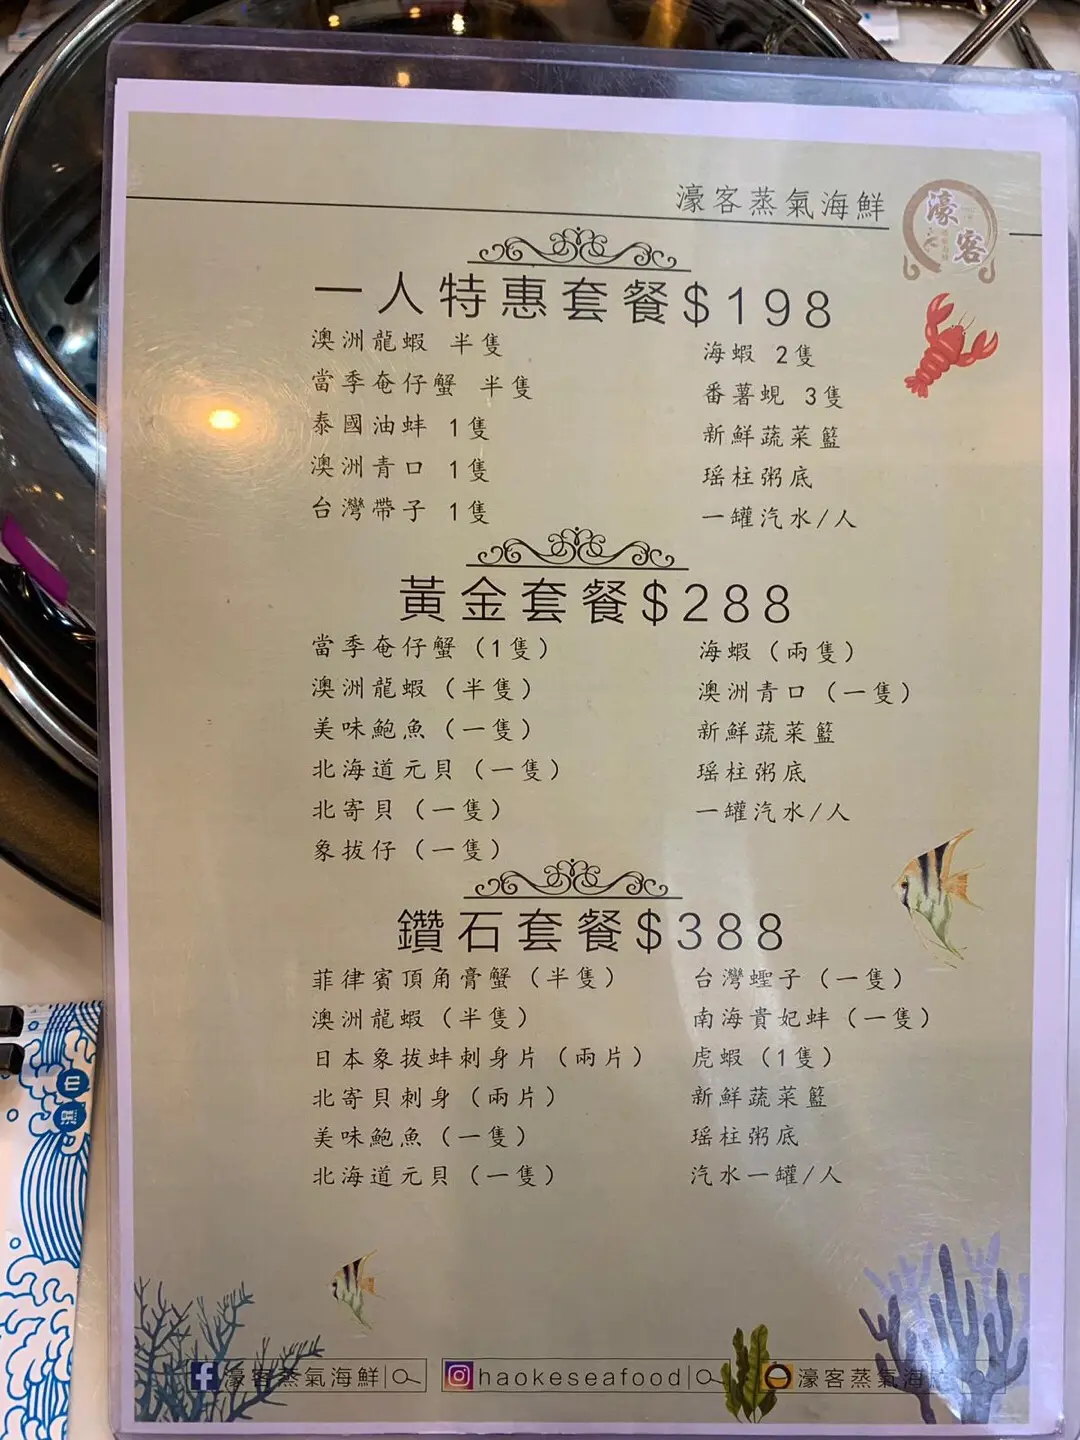 濠客蒸氣海鮮
濠客
一人特惠套餐$198
澳洲龍蝦 半隻
當季奄仔蟹 半隻
泰國油蚌 1隻
澳洲青口 1隻
台灣帶子 1隻
海蝦 2隻
番薯蜆 3隻
新鮮蔬菜籃
瑶柱粥底
一罐汽水/人
黃金套餐$288
當季奄仔蟹（1隻）
澳洲龍蝦（半隻）
美味鮑魚（一隻）
北海道元貝（一隻）
北寄貝（一隻）
象拔仔（一隻）
海蝦（兩隻）
澳洲青口（一隻）
新鮮蔬菜籃
瑶柱粥底
一罐汽水/人
鑽石套餐$388
菲律賓頂角膏蟹（半隻）
澳洲龍蝦（半隻）
日本象拔蚌刺身片（兩片）
北寄貝刺身（兩片）
美味鮑魚（一隻）
北海道元貝（一隻）
台灣蟶子（一隻）
南海貴妃蚌（一隻）
虎蝦（1隻）
新鮮蔬菜籃
瑶柱粥底
汽水一罐/人
濠客蒸氣海鮮
haokeseafood
濠客蒸氣海鮮